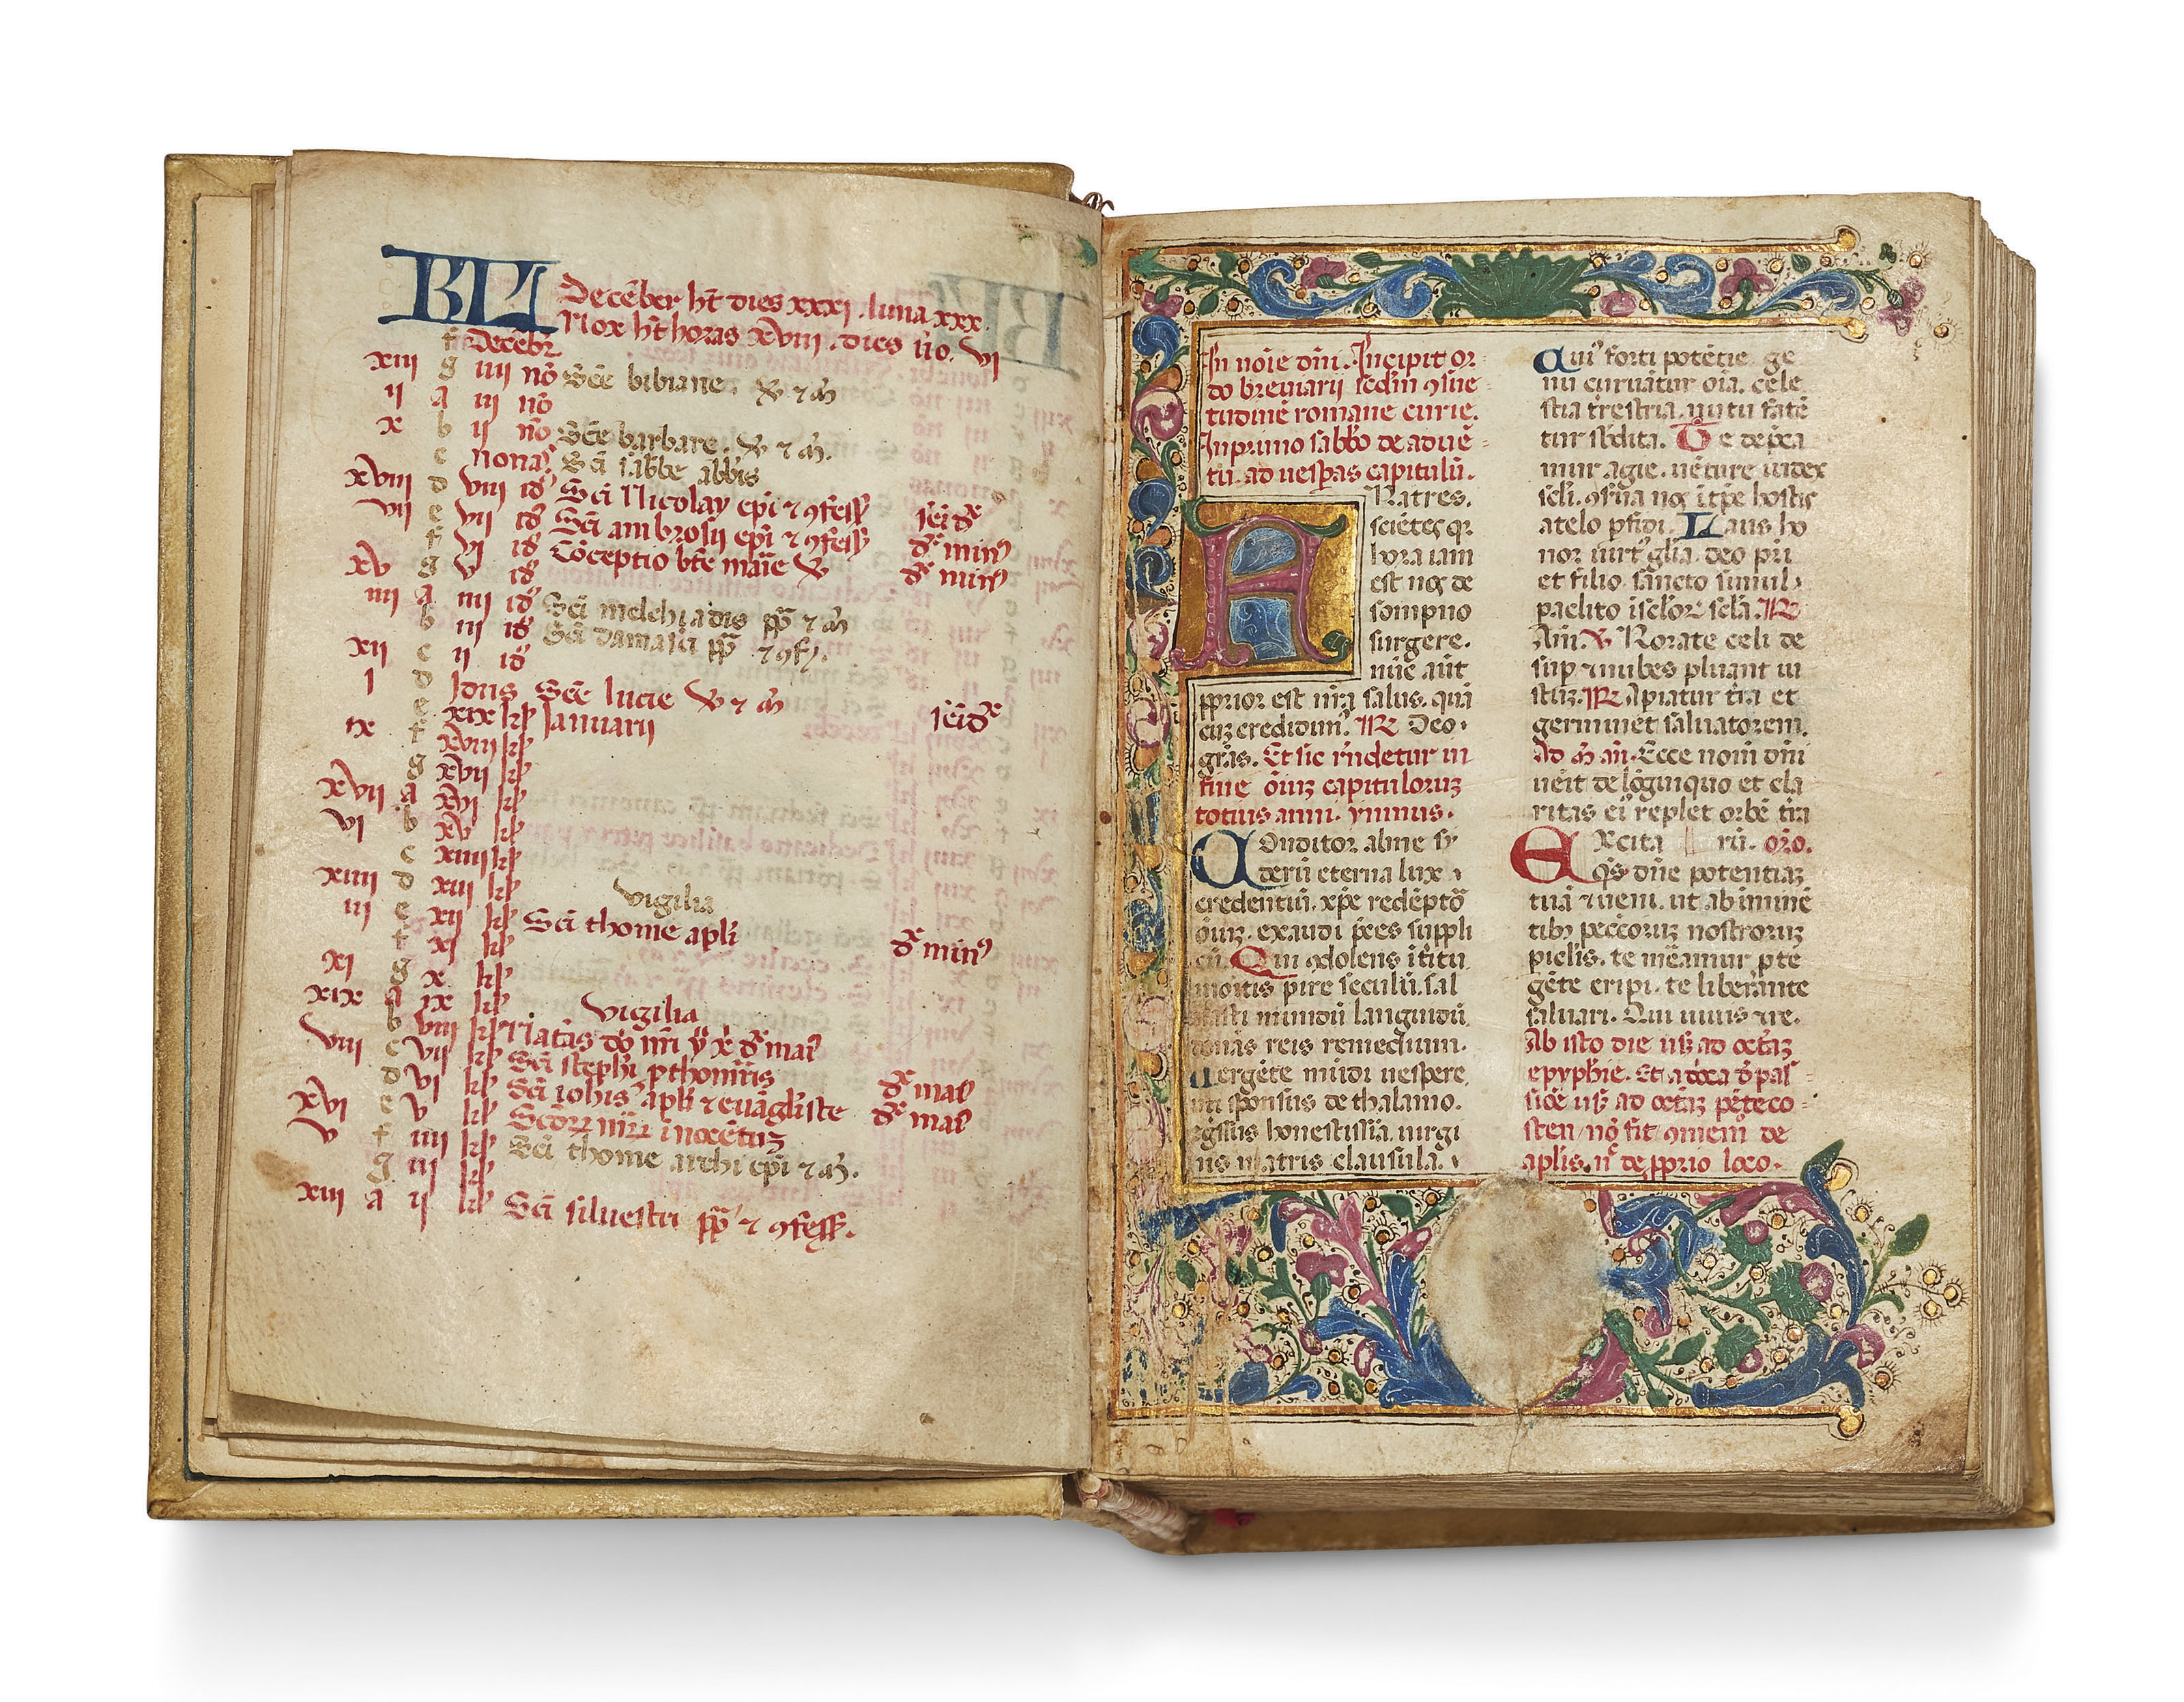 KL Decēber ht̄ dies xxxi . luna xxx.
Nox ht̄ horas xviii . dies ūo. vi
f Decēbr̄
xiii g iiii nō Scē bibiane. v̄ ⁊ m̄
ii a iii nō
x b ii nō Scē barbare. v̄ ⁊ m̄.
c nonas Scī sabbe abbis
xviii d viii id Scī Nicolay epī ⁊ ꝯfess
vii e vii id Scī ambrosii epī ⁊ ꝯfess
f vi id Cōceptio bt̄e marie v̄
xv g v id
iiii a iiii id Scī melchiadis pp̄ ⁊ m̄
b iii id Scī damasci pp̄ ⁊ ꝯf.
xii c ii id
i d Idus Scē lucie v̄ ⁊ m̄
e xix kl Ianuarii
ix f xviii kl
g xvii kl
xvii a xvi kl
vi b xv kl
c xiiii kl
xiiii d xiii kl vigilia
iii e xii kl Scī thome apl̄i
f xi kl
xi g x kl
xix a ix kl vigilia
b viii kl
viii c vii kl Scī stephī
d vi kl Scī iohis apl̄i ⁊ evāgl̄iste
xvi e v kl
v f iiii kl Scī thome archiepī ⁊ m̄.
g iii kl
xiii a ii kl Scī silvestri pp̄ ⁊ ꝯfess.
In noīe dn̄i. Incipit or
do breviarii secdm ꝯsue
tudinē romane curie.
In primo sabbo de aduē
tu. ad vesꝑas capitulū.
Fratres.
scietes qꝛ
hora iam
est nos de
sompno
surgere.
nūc aūt
ꝓprior est nr̄a salus. quā
cuz credidim⁹. ℟ Deo
gr̄as. Et sic rn̄detur in
fine oīuz capitulorus
totius anni. ymnus.
Conditor alme sy
derū eterna lux
credentiū. xp̄e redēptoꝛ
oīuz. exaudi p̄ces suppli
cū. Qui ꝯdolens ītitu
mortis pire seculū. sal
vasti mundū languidū
donās reis remedium.
Uergēte mūdi vespere
uti sponsus de thalamo.
egssus honestissīa. virgi
nis matris clausula.
Cui⁹ forti potētie. ge
nu curvātur oīa. cele
stia trestria. nutu fatē
tur sbdita. Te depca
mur agie. vēture iudex
scli. ꝯsrua nos ītpe hostis
a telo pfidi. Laus ho
nor virt⁹ glīa. deo pri
et filio. sancto simul
paclito īsclor scla. ℟
Am̄. ℣ Rorate celi de
sup ⁊ nubes pluant iu
stuz. ℟ Apiatur tr̄a et
germinet salvatorem.
Ad m̄ an̄. Ecce nom dn̄i
venit de lōginquo et cla
ritas ei⁹ replet orbē tr̄a
Excita rū. or̄o.
qs dn̄e potentiaz
tuā ⁊ veni. ut ab imīnē
tibꝫ peccoruz nostroruz
piclis. te mēamur pte
gēte eripi. te liberante
salvari. Qui vivis ⁊ re.
Ab isto die usqꝫ ad octaz
epyphie.
usqꝫ ad octaz pēteco
sten nō fit ꝯmem̄ de
aplis. de ꝓprio loco.